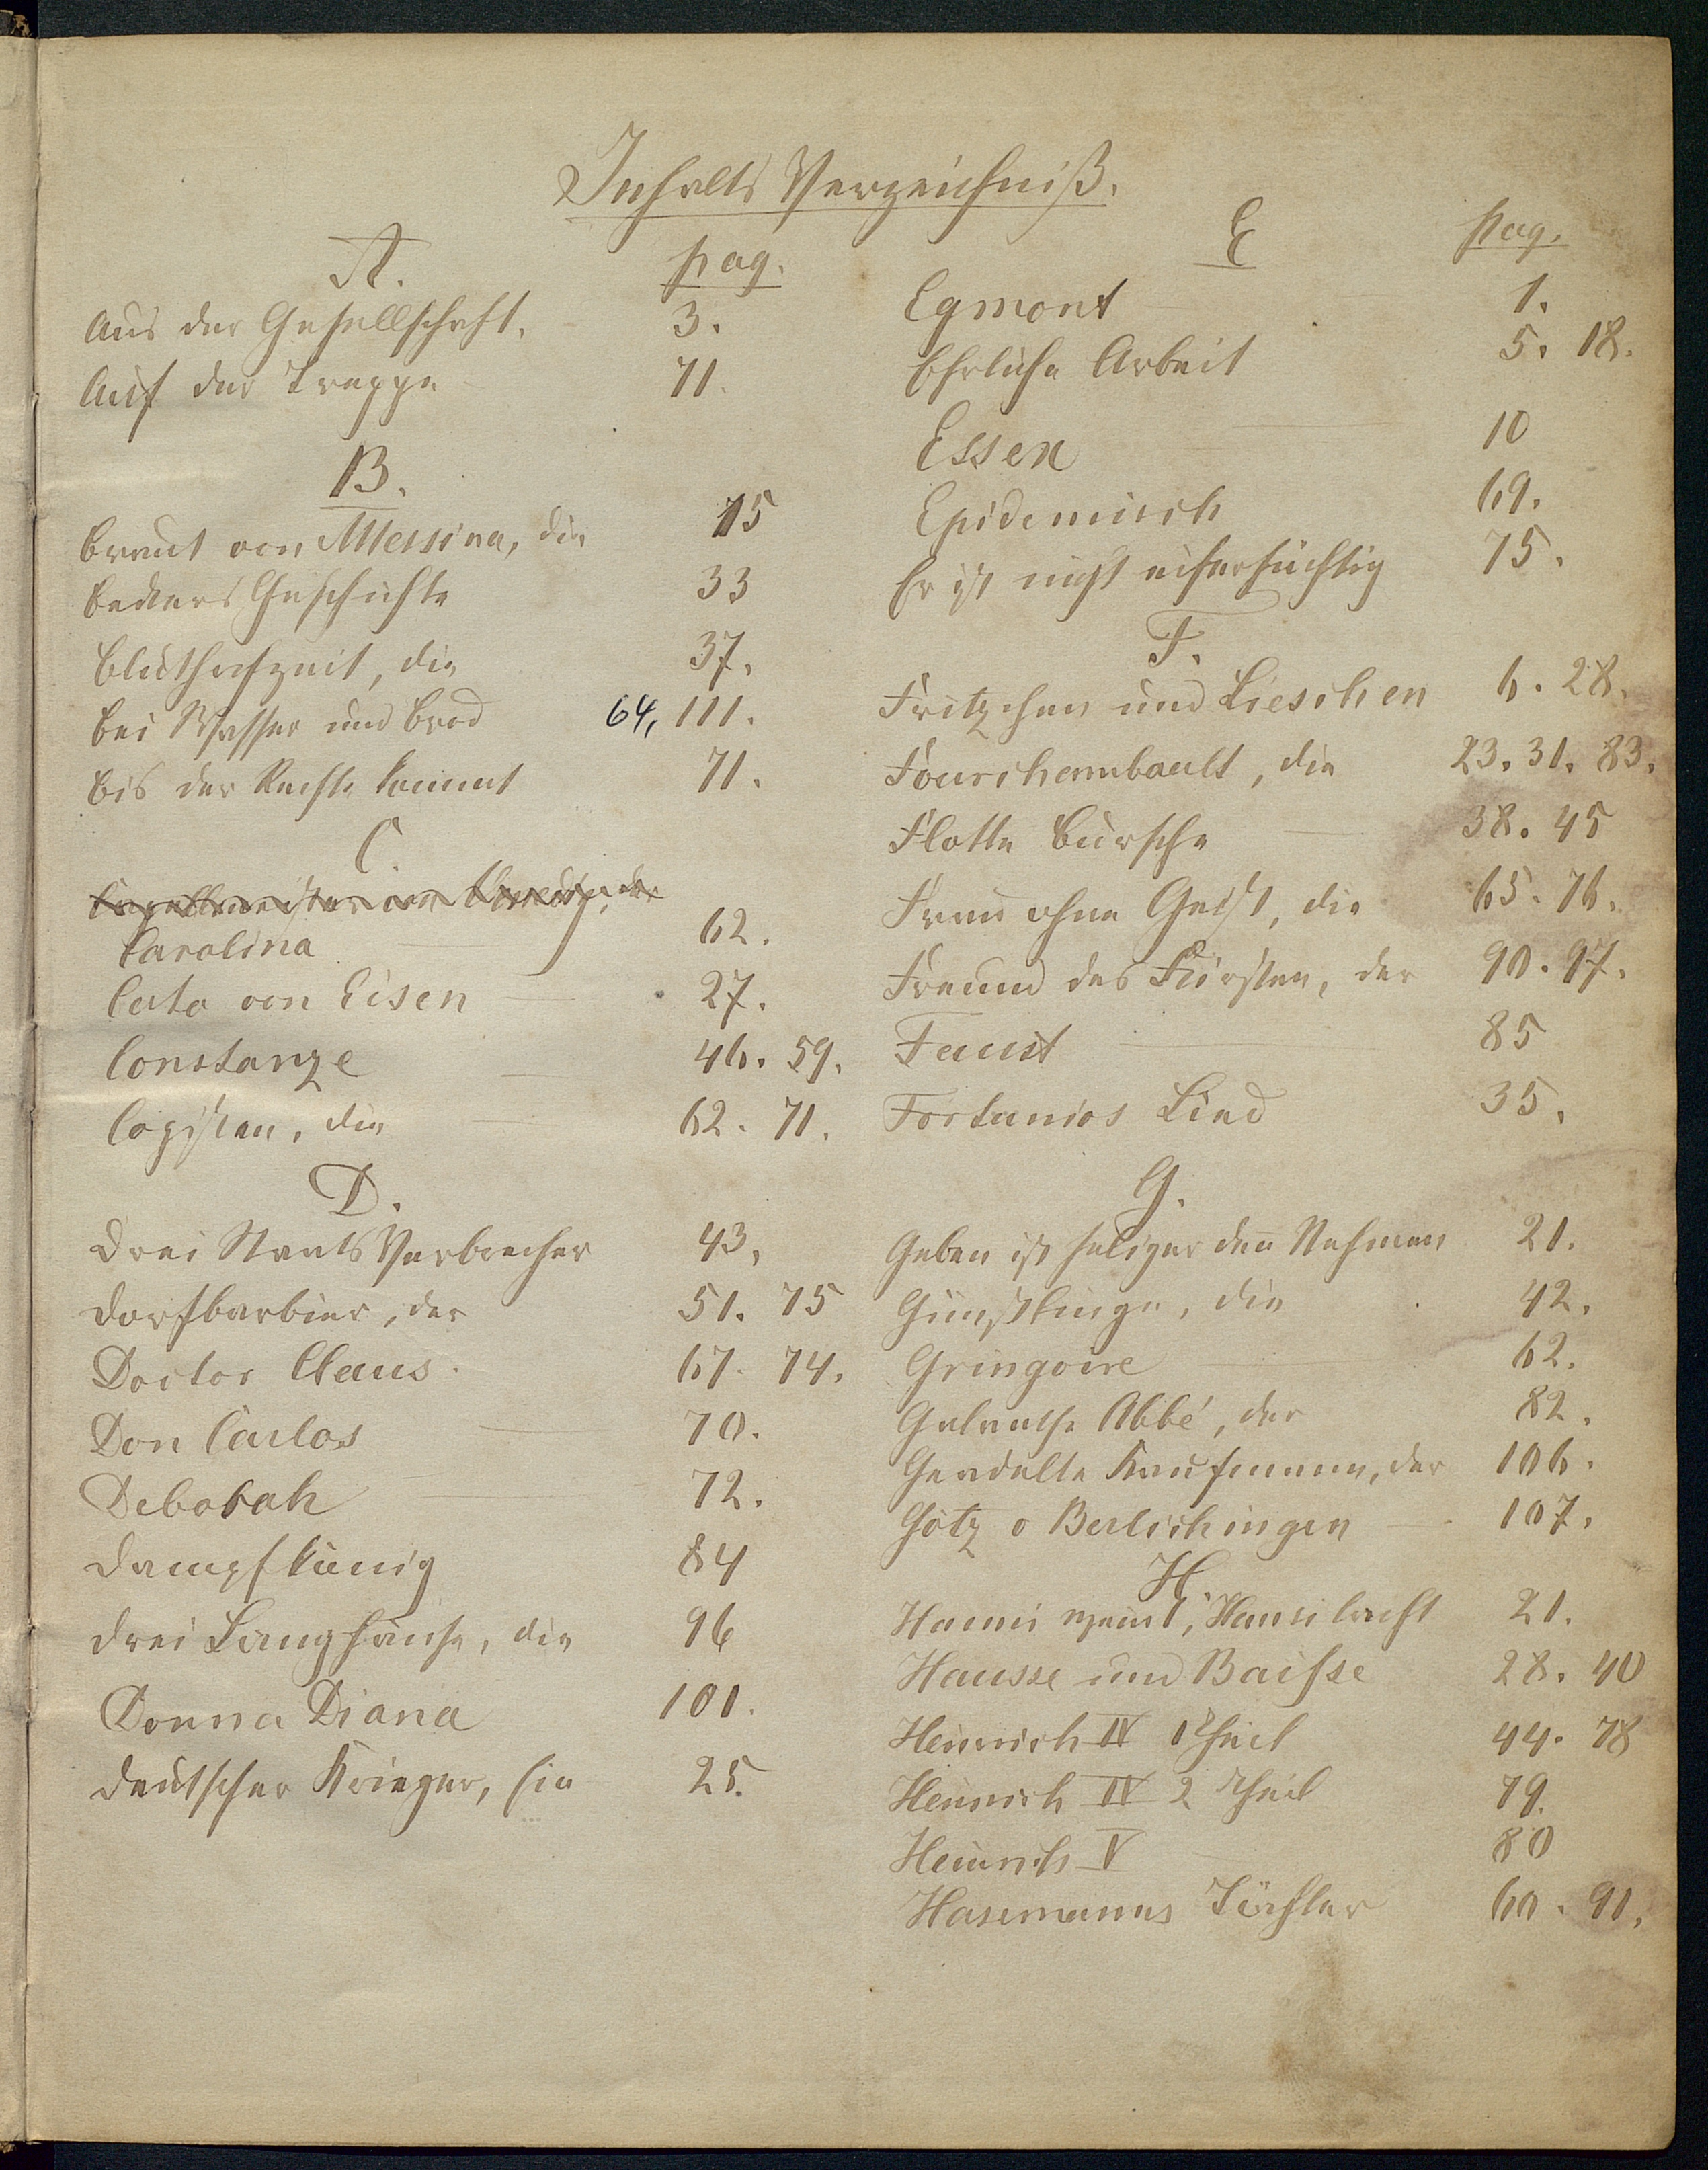 Inhalts Verzeichniß.
A. pag.
Aus der Gesellschaft. 3.
Auf der Treppe 71.
B.
Braut von Messina, die 15
Beckers Geschichte 33
Bluthochzeit, die 37.
Bei Wasser und Brod 64, 111.
Bis der Rechte kommt 71.
C.
Capellmeister von Venedig, der
Carolina 62.
Cato von Eisen 27.
Constanze 46. 59.
Copisten, die 62. 71.
D.
Drei Staats Verbrecher 43.
Dorfbarbier, der 51. 75
Doctor Claus 67. 74.
Don Carlos 70.
Deborah 72.
Dampfkönig 84
Drei Langhälse, die 96
Donna Diana 101.
Deutscher Krieger, Ein 25.
E pag.
Egmont 1.
Ehrliche Arbeit 5. 18.
Essex 10
Epidemisch 69.
Er ist nicht eifersüchtig 75.
F.
Fritzchen und Lieschen 6. 28.
Fourchambault, die 23. 31. 83.
Flotte Bursche 38. 45
Frau ohne Geist, die 65. 76.
Freund des Fürsten, der 90. 97.
Faust 85
Fortunios Lied 35.
G.
Geben ist seliger den Nehmen 21.
Günstlinge, die 42.
Gringoire 62.
Galante Abbé, der 82.
Geadelte Kaufmann, der 106.
Götz v Berlichingen 107.
H.
Hanni weint, Hansi lacht 21.
Hausse und Baisse 28. 40
Heinrich IV 1 Theil 44. 78
Heinrich IV 2 Theil 79.
Heinrich V 80
Hasemanns Töchter 60. 91.